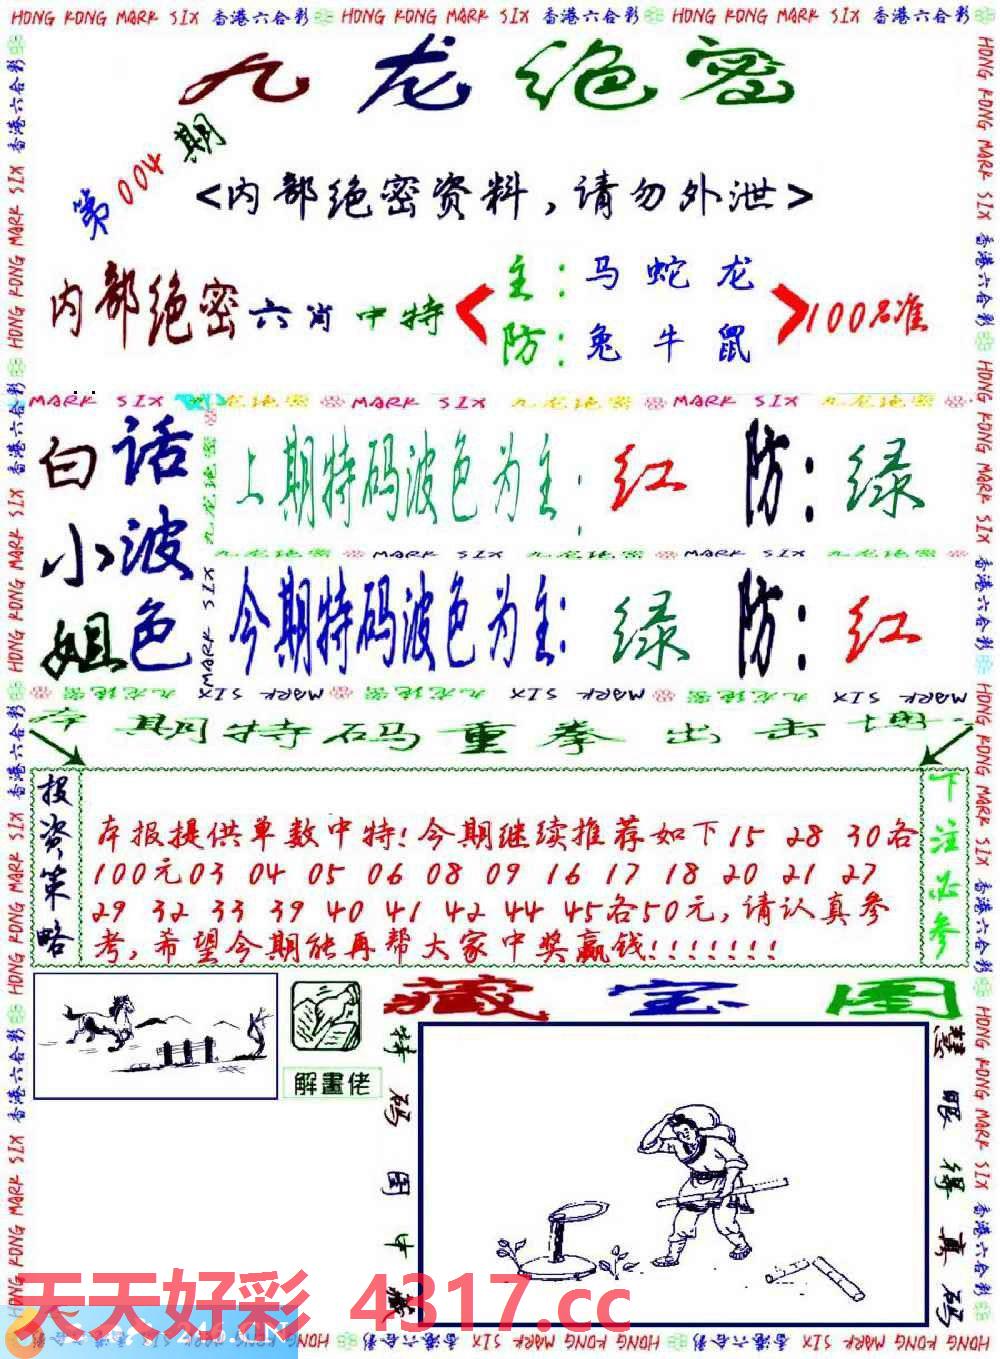 HONG KONG MARK SIX 香港六合彩 HONG KONG MARK SIX 香港六合彩 HONG KONG MARK SIX 香港六合彩
九龙绝密
第004期
<内部绝密资料,请勿外泄>
内部绝密六肖中特
主:马蛇龙
防:兔牛鼠
100%准
MARK SIX 九龙绝密 MARK SIX 九龙绝密 MARK SIX 九龙绝密
白小姐
话波色
上期特码波色为主:红 防:绿
九龙绝密 MARK SIX 九龙绝密 MARK SIX 九龙绝密
今期特码波色为主:绿 防:红
本期特码重拳出击
投资策略
本报提供单数中特!今期继续推荐如下15 28 30各
100元03 04 05 06 08 09 16 17 18 20 21 27
29 32 33 39 40 41 42 44 45各50元,请认真参
考,希望今期能再帮大家中奖赢钱!!!!!!!
下注必参
解畫佬
藏宝图
特码图中藏
慧眼得真码
天天好彩 4317.cc
HONG KONG MARK SIX 香港六合彩